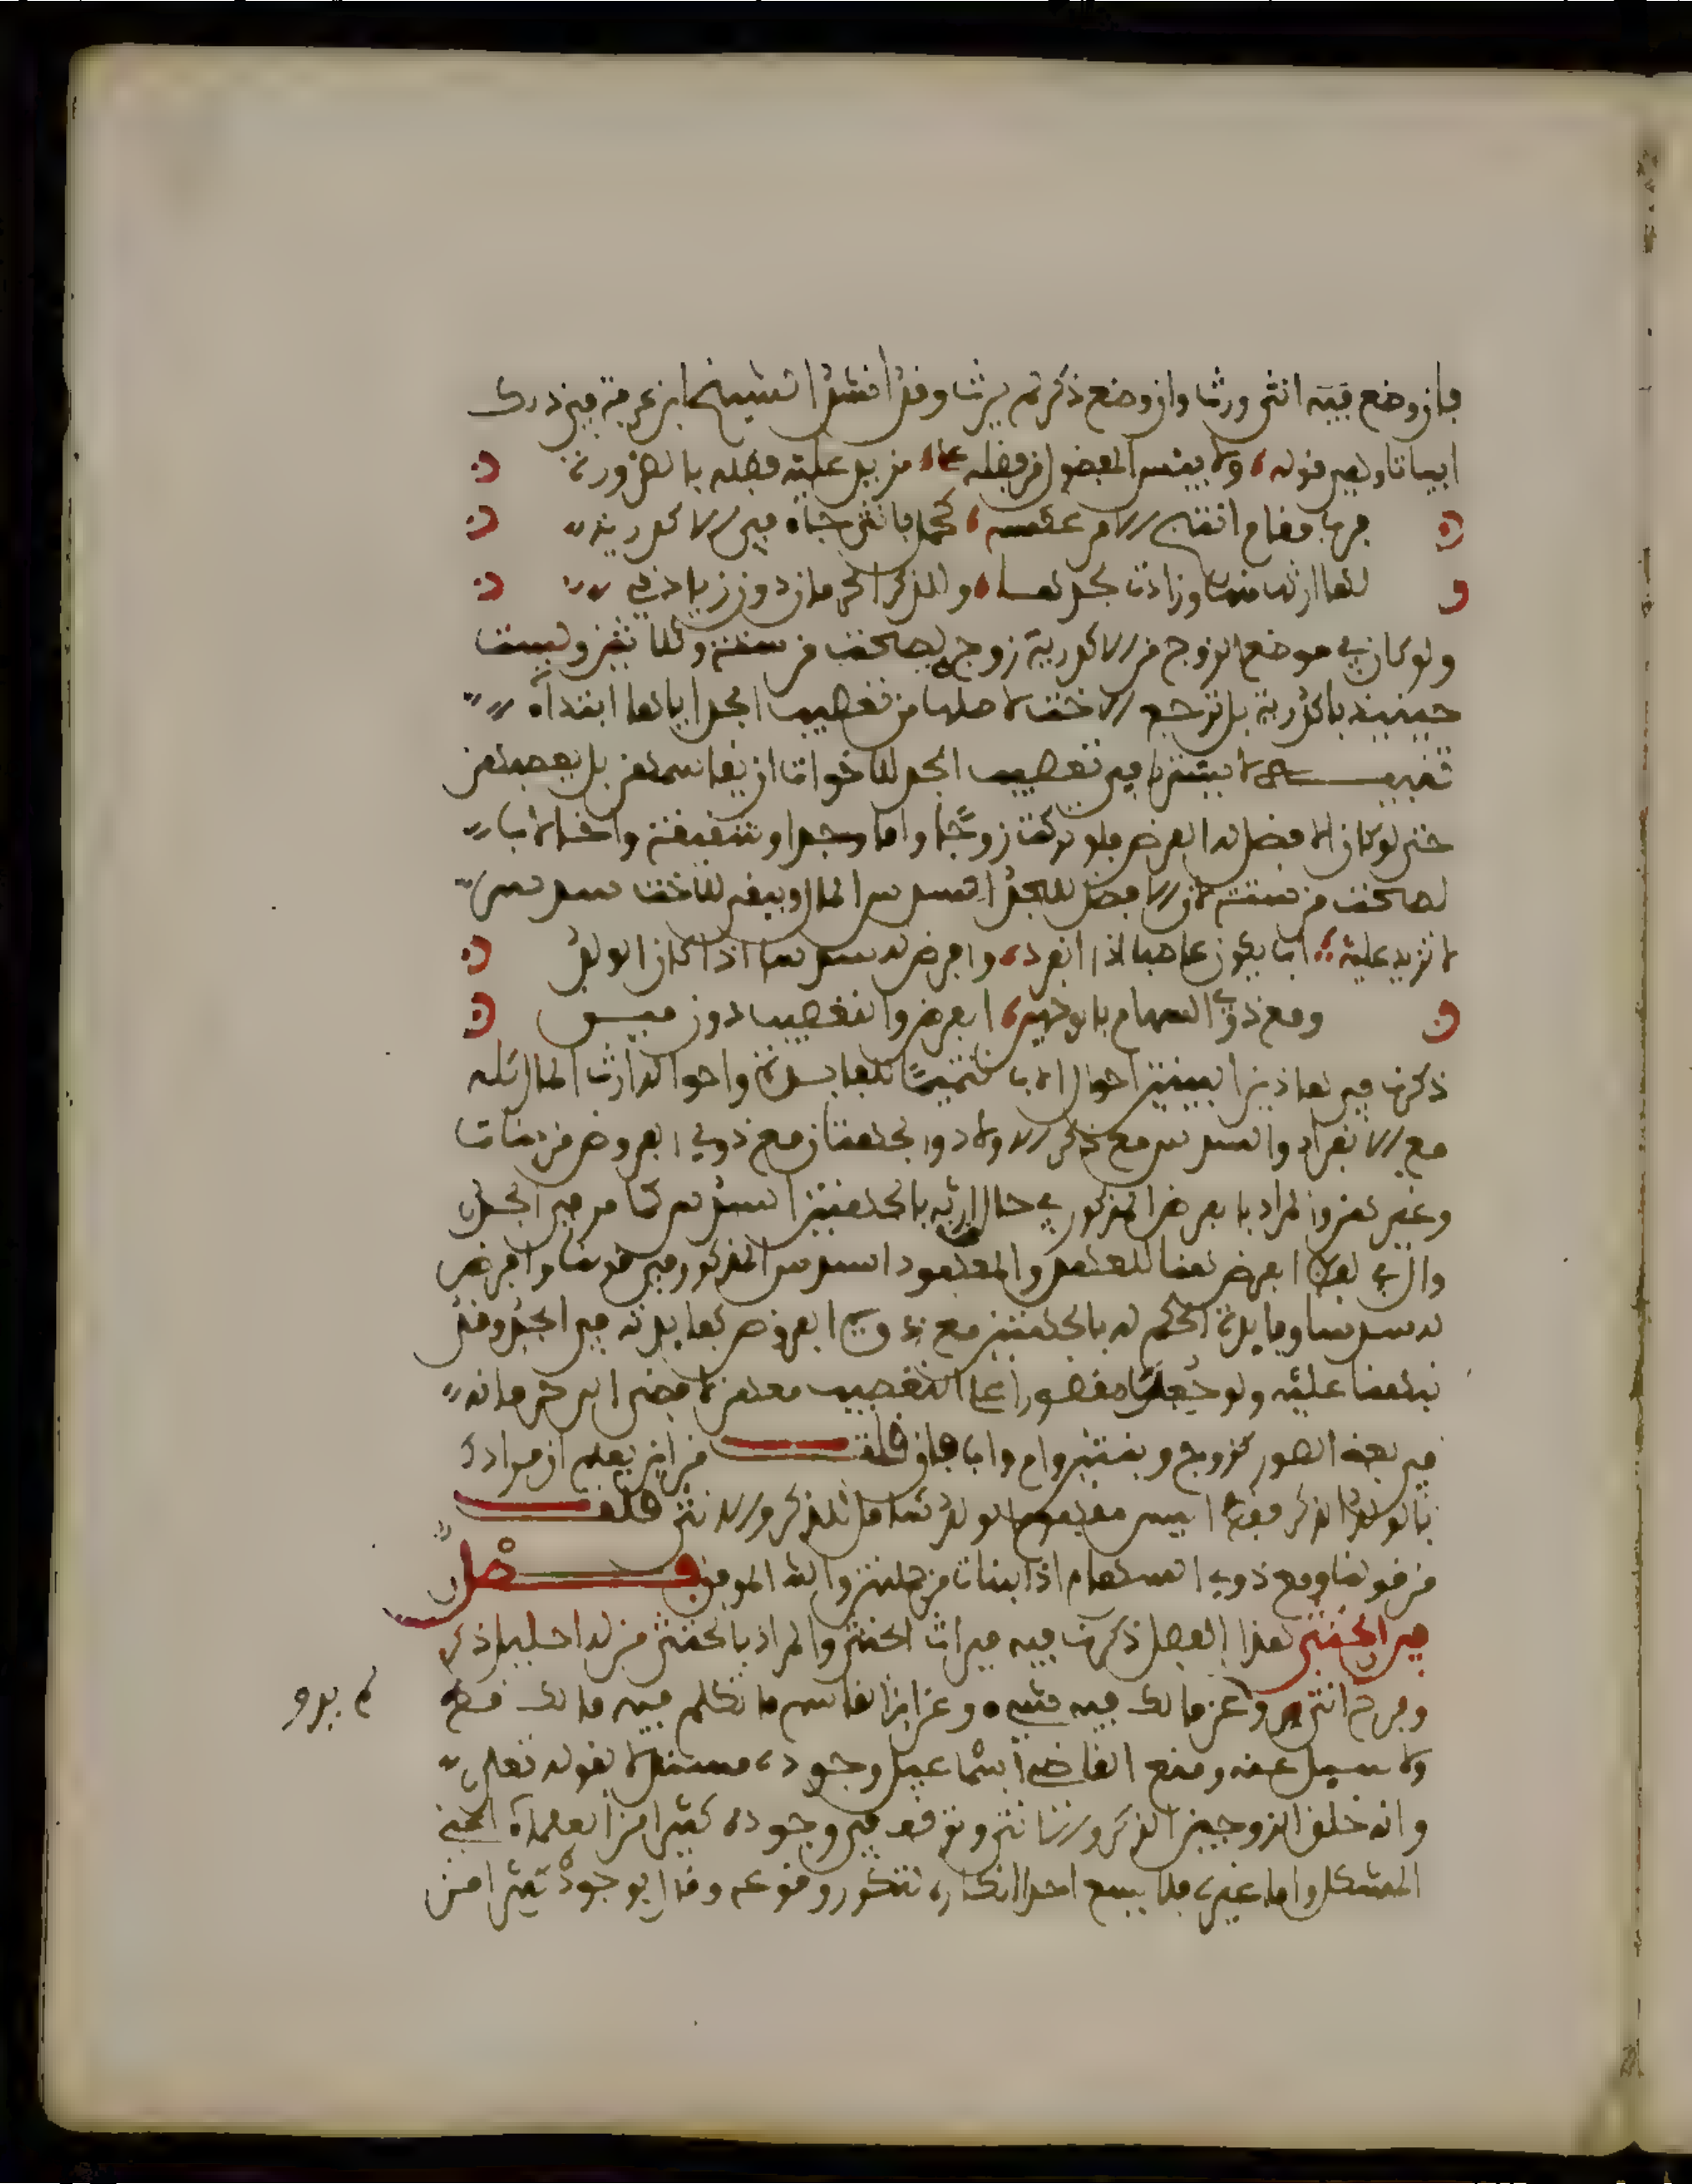 فإن وضع فيه انثى ورثا وان وضع ذكر لم يرث وقد انشد الشيخ ابن عرفة في ذلك
ابياتا وهي قوله ولا ييئس المفضول من فضله على مزيد عليه فضله بالضرورة
فرب مقام انتج الامر عكسه كحمل بانثى جاء في الاكدرية
لها ارثها منها وزادت بجدها وللذكر الحرمان دون زيادة
ولو كان في موضع الزوج من الاكدرية زوجه لصحت من ستة وثلاثين وليست
حينئذ باكدرية بل ترجع الاخت لاصلها من تعصيب الجد اياها ابتداء
تنبيه لا يشترط في تعصيب الجد للاخوات ان يقاسمهن بل يعصبهن
حتى لو كان الافضل له الفرض فلو تركت زوجا واما وجدا وشقيقة واختا لاب
لصحت من ستة لان الافضل للجد السدس المال ويبقى للاخت سدس
لا تزيد عليه ابا يكون عاصبا اذا انفرد وافرض له سدسا اذا كان الولد
ومع ذوي السهام بالوجهين الفرض والتعصيب دون مين
ذكرت في هاذين البيتين احوال الاب تتميما للفائدة واحواله ارث المال كله
مع الانفراد والسدس مع ذكر الاولاد والجهتان مع ذوي الفروض من بنات
وغيرهن والمراد بالفرض المذكور في حال ارثه بالجهتين السدس كما مر في الجد
وال في لفظ الفرض هنا للعهد والمعهود السدس المذكور في قولنا وافرض
له سدسا وفايدة الحكم له بالجهتين مع ذوي الفروض كفايدته في الجد وقد
نبهنا عليه ولو جعلنا مقصورا على التعصيب معهن لافضى الى حرمانه
في بعض الصور كزوج وبنتين وام واب فان قلت من اين يعلم ان مرادك
بالولد الذكر فقط اليس مفهوم الولد شاملا للذكر والانثى قلت
من قولنا ومع ذوي السهام اذ البنات من جملتهن والله الموفق فصل
في الخنثى هذا الفصل ذكرت فيه ميراث الخنثى والمراد بالخنثى من له احليل ذكر
وفرج انثى وعن مالك فيه شيء وعن ابن القاسم ما تكلم فيه مالك قط
لم يرو
ولا سيل عنه ومنع القاضي اسماعيل وجوده مستدلا بقوله تعلى
وانه خلق الزوجين الذكر والانثى وتوقف في وجوده كثير من العلماء اعني
المشكل واما غيره فلا يسع احدا انكاره لتكرر وقوعه وقال بوجوده كثير من